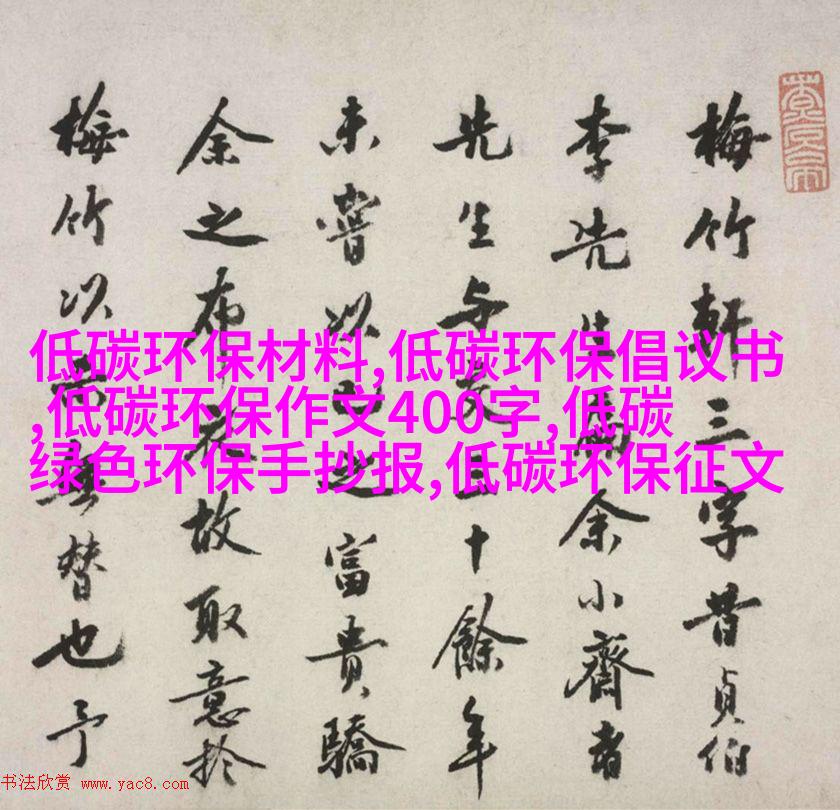 梅竹軒三字昔貞伯
李先生為余小齋
先生与交三十餘年
未嘗以富貴驕
余之布衣故取意於
梅竹以無替也予
低碳环保材料,低碳环保倡议书
,低碳环保作文400字,低碳
绿色环保手抄报,低碳环保征文
书法欣赏 www.yac8.com